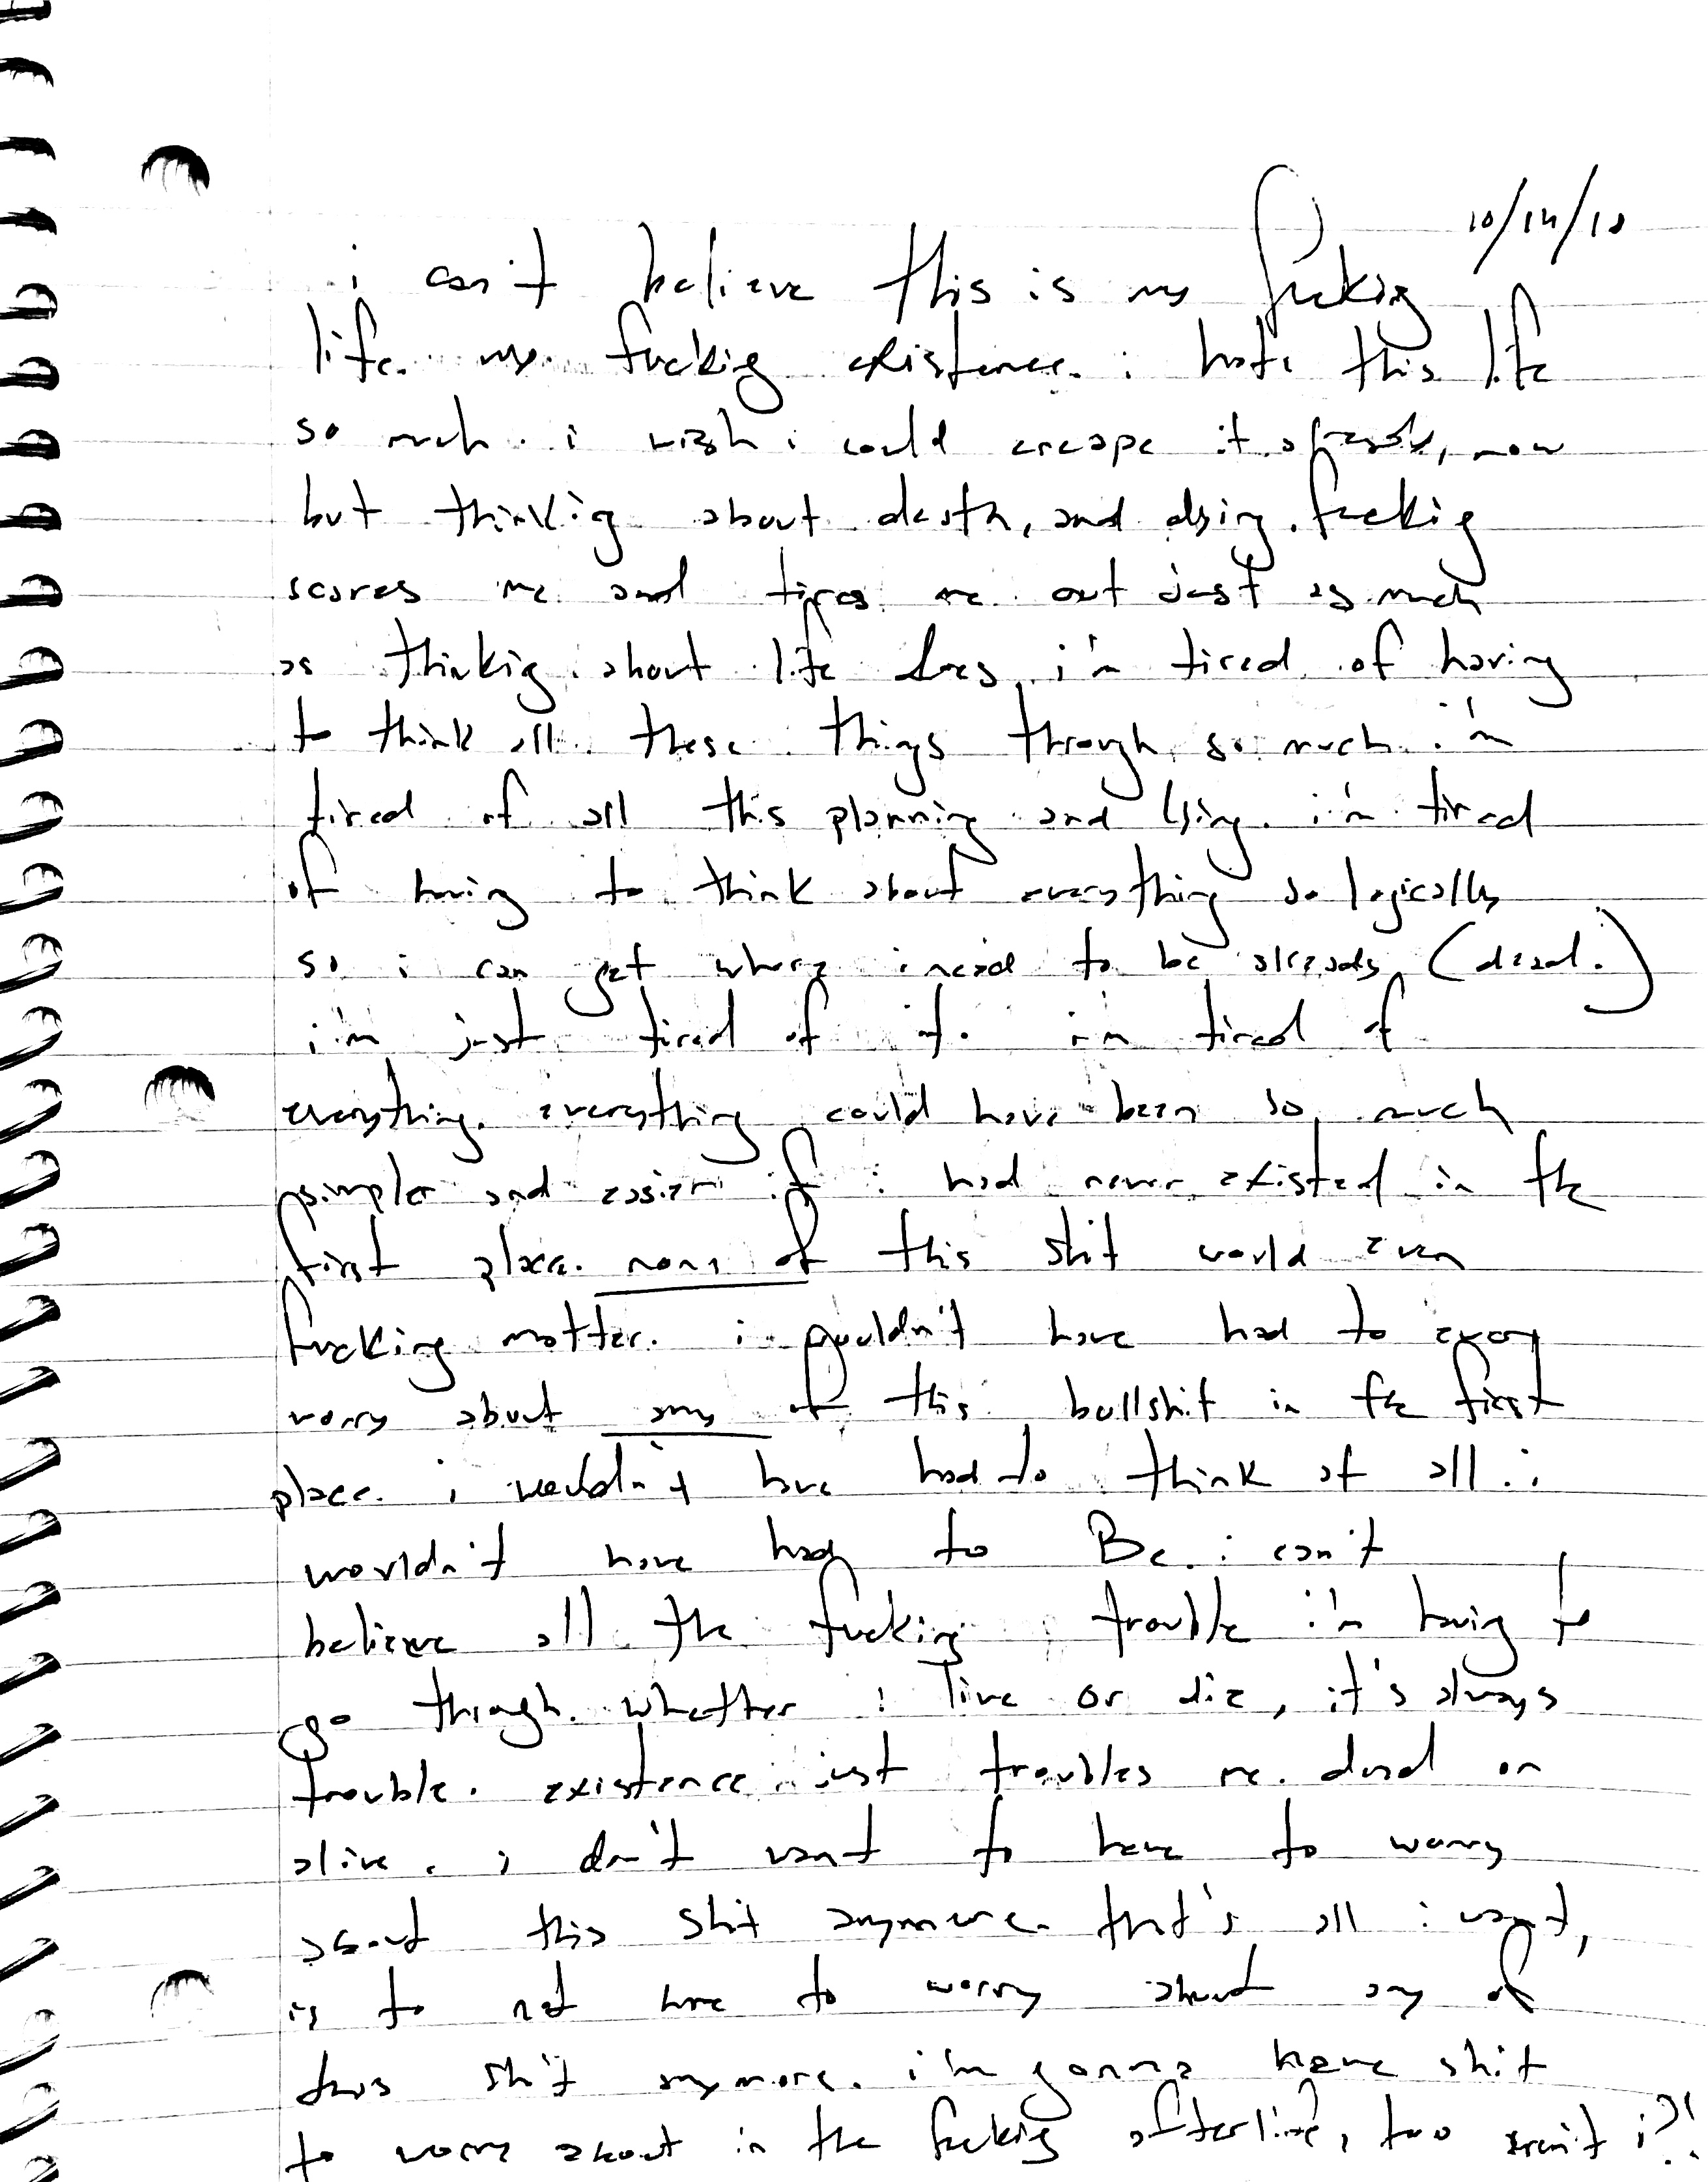 10/14/18
i can't believe this is my fucking
life. my fucking existence. i hate this life
so much. i wish i could escape it already, now
but thinking about death, and dying. fucking
scares me and tires me out just as much
as thinking about life does. i'm tired of having
to think all these things through so much. i'm
tired of all this planning and lying. i'm tired
of having to think about everything so logically
so i can get where i need to be already (dead.)
i'm just tired of it. i'm tired of
everything. everything could have been so much
simpler and easier if i had never existed in the
first place. none of this shit would even
fucking matter. i wouldn't have had to every
worry about any of this bullshit in the first
place. i wouldn't have had to think at all. i
wouldn't have had to Be. i can't
believe all the fucking trouble i'm having to
go through. whether i live or die, it's always
trouble. existence just troubles me. dead or
alive. i don't want to have to worry
about this shit anymore. that's all i want,
is to not have to worry about any of
this shit anymore. i'm gonna have shit
to worry about in the fucking afterlife, too aren't i?!